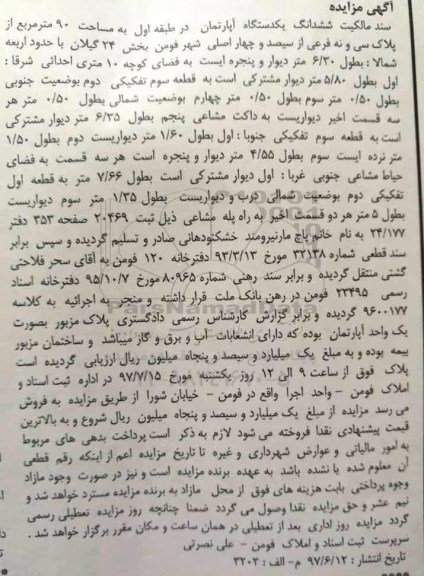 آگهی مزایده
سند مالکیت ششدانگ یکدستگاه آپارتمان در طبقه اول به مساحت ۹۰ مترمربع از
پلاک سی و نه فرعی از سیصد و چهار اصلی شهر فومن بخش ۲۴ گیلان با حدود اربعه
شمالا : بطول ۶/۳۰ متر دیوار و پنجره ایست به فضای کوچه ۱۰ متری احداثی شرقا :
اول بطول ۵/۸۰ متر دیوار مشترکی است به قطعه سوم تفکیکی دوم بوضعیت جنوبی
بطول ۰/۵۰ متر سوم بطول ۰/۵۰ متر چهارم بوضعیت شمالی بطول ۰/۵۰ متر هر
سه قسمت اخیر دیواریست به داکت مشاعی پنجم بطول ۶/۳۵ متر دیوار مشترکی
است به قطعه سوم تفکیکی جنوبا : اول بطول ۱/۶۰ متر دیواریست دوم بطول ۱/۵۰
متر نرده ایست سوم بطول ۴/۵۵ متر دیوار و پنجره است هر سه قسمت به فضای
حیاط مشاعی جنوبی غربا : اول دیوار مشترکی است بطول ۷/۶۶ متر به قطعه اول
تفکیکی دوم بوضعیت شمالی درب و دیواریست بطول ۱/۳۵ متر سوم دیواریست
بطول ۵ متر هر دو قسمت اخیر به راه پله مشاعی ذیل ثبت ۲۰۴۶۹ صفحه ۳۵۳ دفتر
۲۴/۱۷۷ به نام خانم پاچ مارنیرومند خشکنودهانی صادر و تسلیم گردیده و سپس برابر
سند قطعی شماره ۳۲۱۳۸ مورخ ۹۳/۳/۱۳ دفترخانه ۱۲۰ فومن به آقای سحر فلاحتی
گشتی منتقل گردیده و برابر سند رهنی شماره ۸۰۹۶۵ مورخ ۹۵/۱۰/۷ دفترخانه اسناد
رسمی ۲۳۴۹۵ فومن در رهن بانک ملت قرار داشته و منجر به اجرائیه به کلاسه
۹۶۰۰۱۷۷ گردیده و برابر گزارش کارشناس رسمی دادگستری پلاک مزبور بصورت
یک واحد آپارتمان بوده که دارای انشعابات آب و برق و گاز میباشد و ساختمان مزبور
بیمه بوده و به مبلغ یک میلیارد و سیصد و پنجاه میلیون ریال ارزیابی گردیده است
پلاک فوق از ساعت ۹ الی ۱۲ روز یکشنبه مورخ ۹۷/۷/۱۵ در اداره ثبت اسناد و
املاک فومن - واحد اجرا واقع در فومن - خیابان شورا از طریق مزایده به فروش
می رسد مزایده از مبلغ یک میلیارد و سیصد و پنجاه میلیون ریال شروع و به بالاترین
قیمت پیشنهادی نقدا فروخته می شود لازم به ذکر است پرداخت بدهی های مربوط
به امور مالیاتی و عوارض شهرداری و غیره تا تاریخ مزایده اعم از اینکه رقم قطعی
آن معلوم شده یا نشده باشد به عهده برنده مزایده است و نیز در صورت وجود مازاد
وجوه پرداختی بابت هزینه های فوق از محل مازاد به برنده مزایده مسترد خواهد شد و
نیم عشر و حق مزایده نقدا وصول می گردد ضمنا چنانچه روز مزایده تعطیلی رسمی
گردد مزایده روز اداری بعد از تعطیلی در همان ساعت و مکان مقرر برگزار خواهد شد .
سرپرست ثبت اسناد و املاک فومن - علی نصرتی
تاریخ انتشار : ۹۷/۶/۱۲ م- الف : ۳۲۰۲